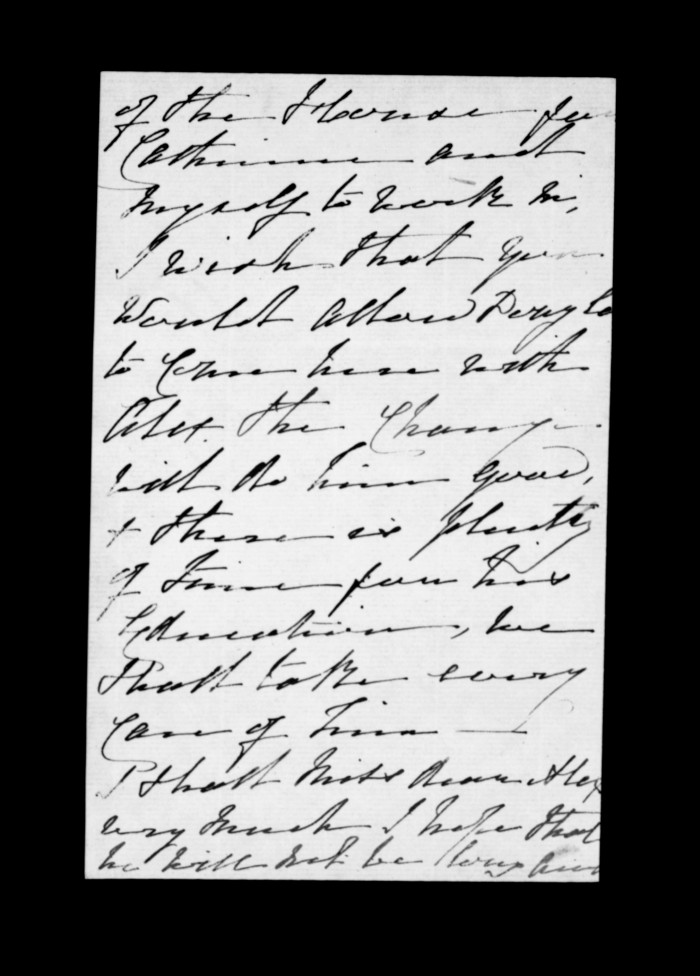 of the House for
Catherine and
myself to work in,
I wish that you
would allow Dougla
to come here with
Alex. the change
will do him good,
& there is plenty
of time for his
Education, we
shall take every
care of him —
I shall miss dear Alex
very much I hope that
he will not be long